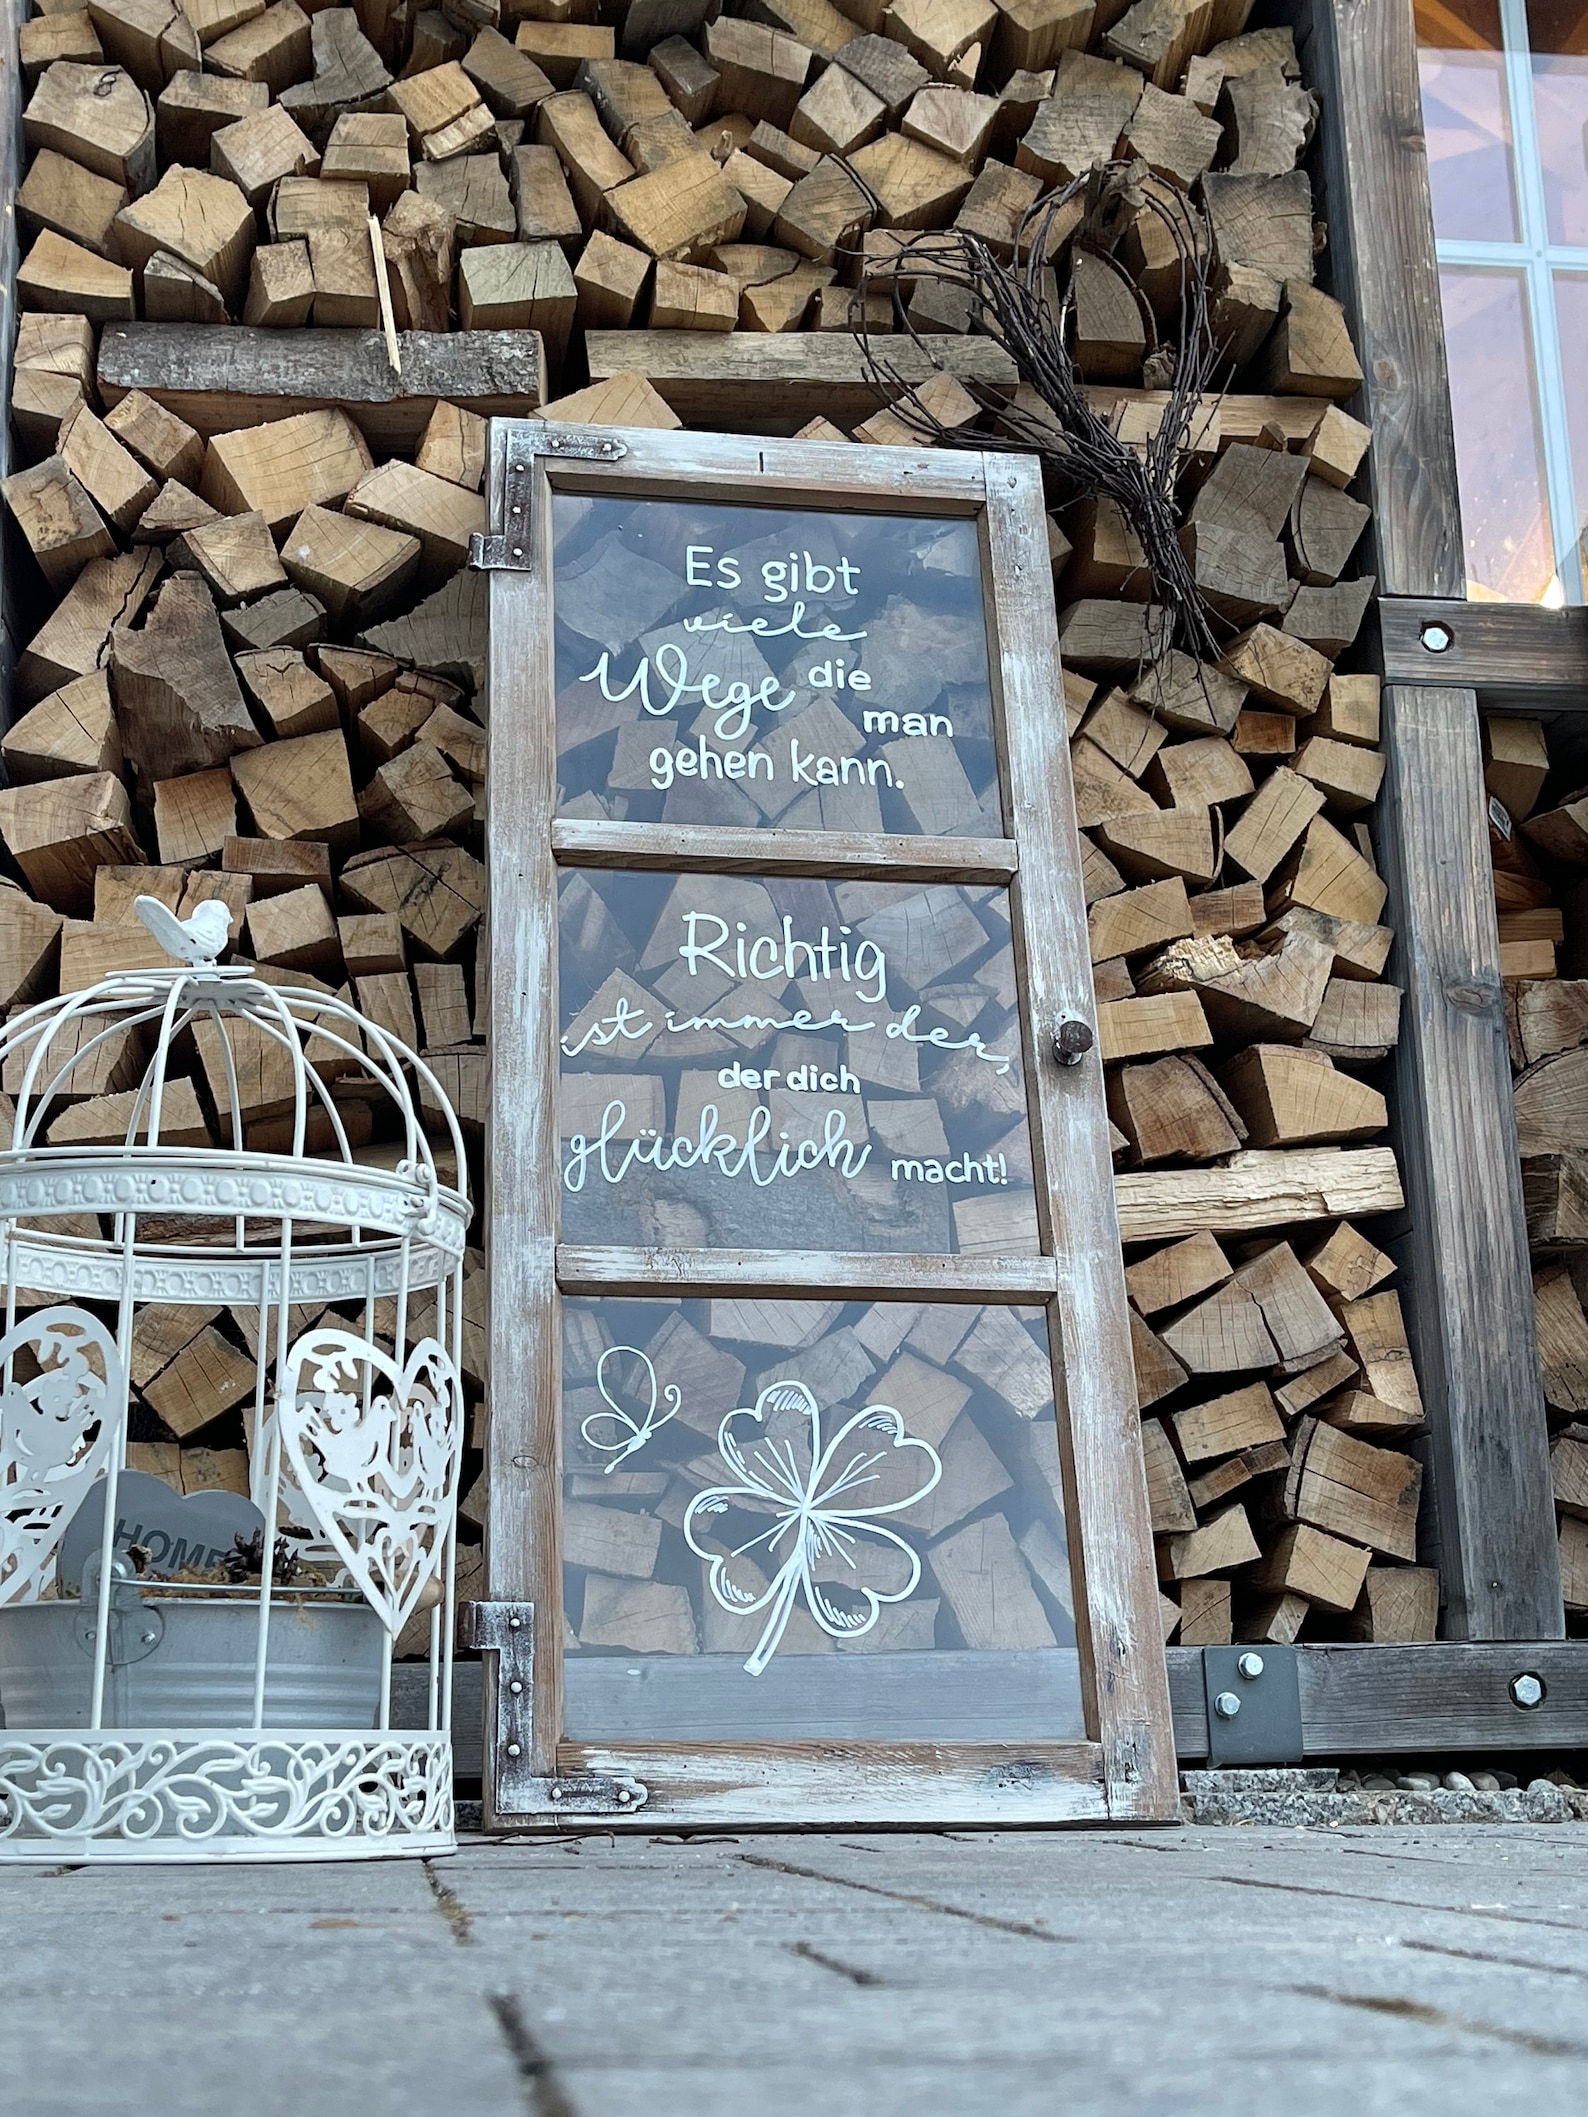 Es gibt
viele
Wege die
man
gehen kann.
Richtig
ist immer der,
der dich
glücklich macht!
HOME